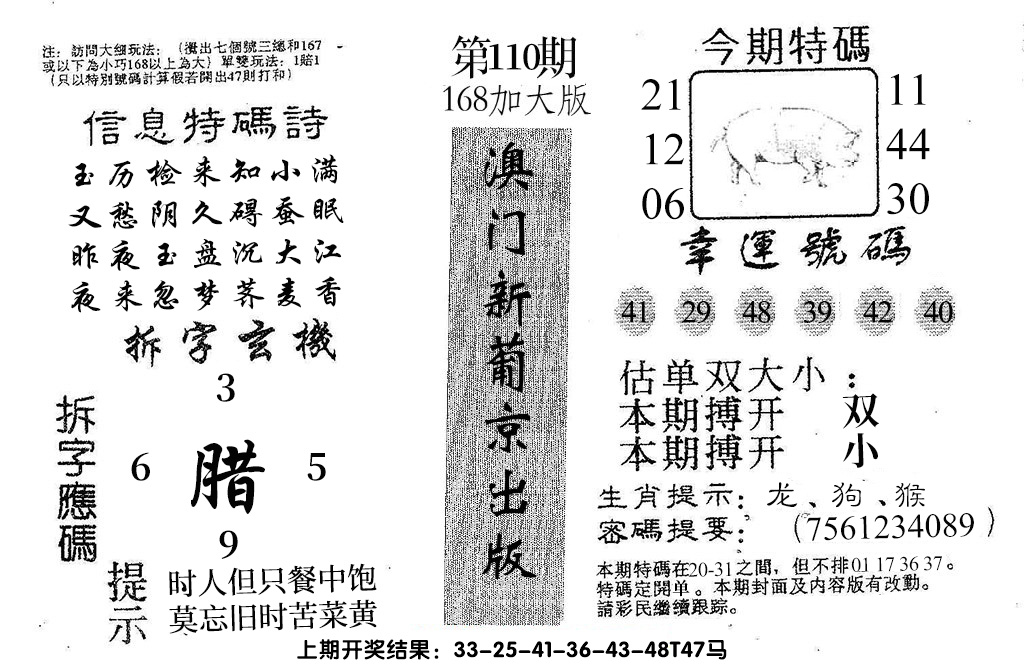 注：訪問大细玩法：（攪出七個號三總和167
或以下為小巧168以上為大）單雙玩法：1賠1
（只以特別號碼計算假若開出47則打和）
信息特碼詩
玉历检来知小满
又愁阴久碍蚕眠
昨夜玉盘沉大江
夜来忽梦荞麦香
拆字玄機
3
拆字應碼
6 腊 5
9
提示
时人但只餐中饱
莫忘旧时苦菜黄
第110期
168加大版
澳门新葡京出版
今期特碼
21 11
12 44
06 30
幸運號碼
41 29 48 39 42 40
估单双大小：
本期搏开 双
本期搏开 小
生肖提示：龙、狗、猴
密碼提要：（7561234089）
本期特碼在20-31之間，但不排01 17 36 37。
特碼定開单。本期封面及内容版有改動。
請彩民繼續跟踪。
上期开奖结果：33-25-41-36-43-48T47马